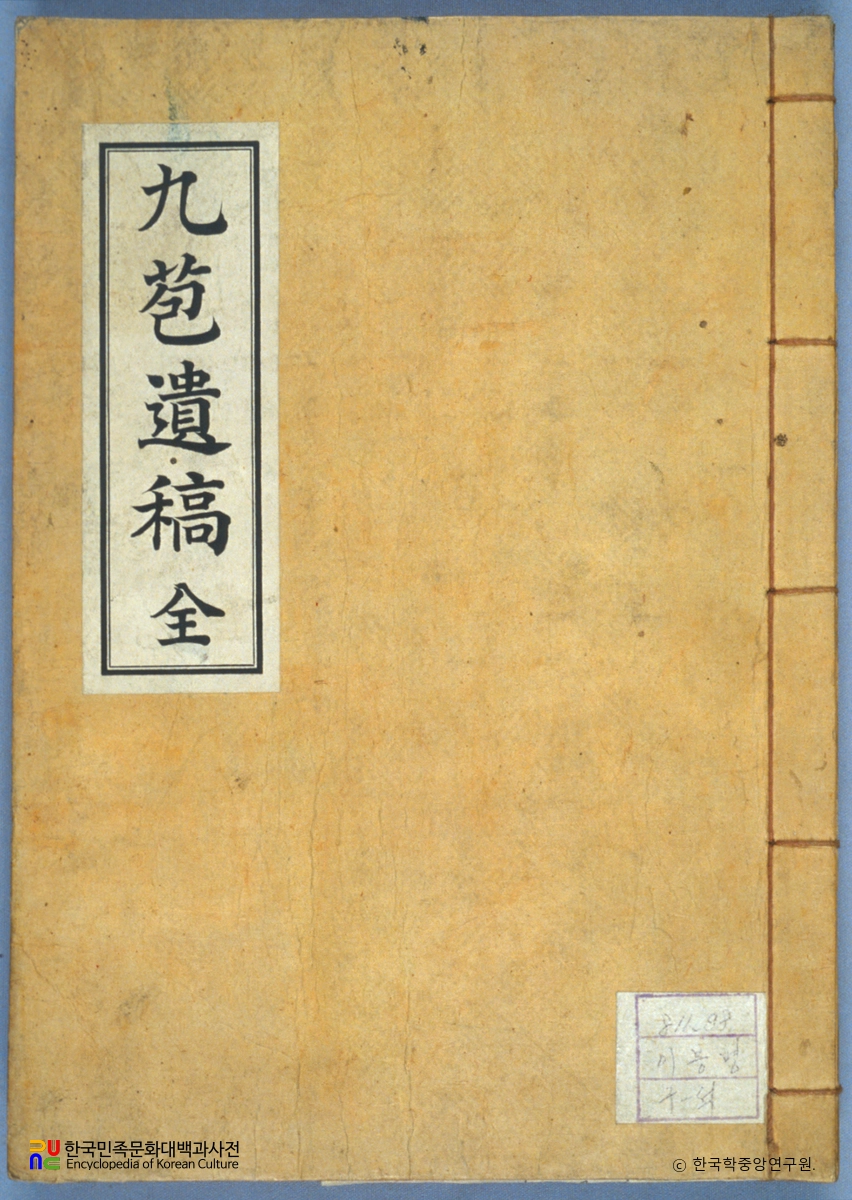 九苞遺稿 全
811.98
한국민족문화대백과사전
Encyclopedia of Korean Culture
© 한국학중앙연구원.